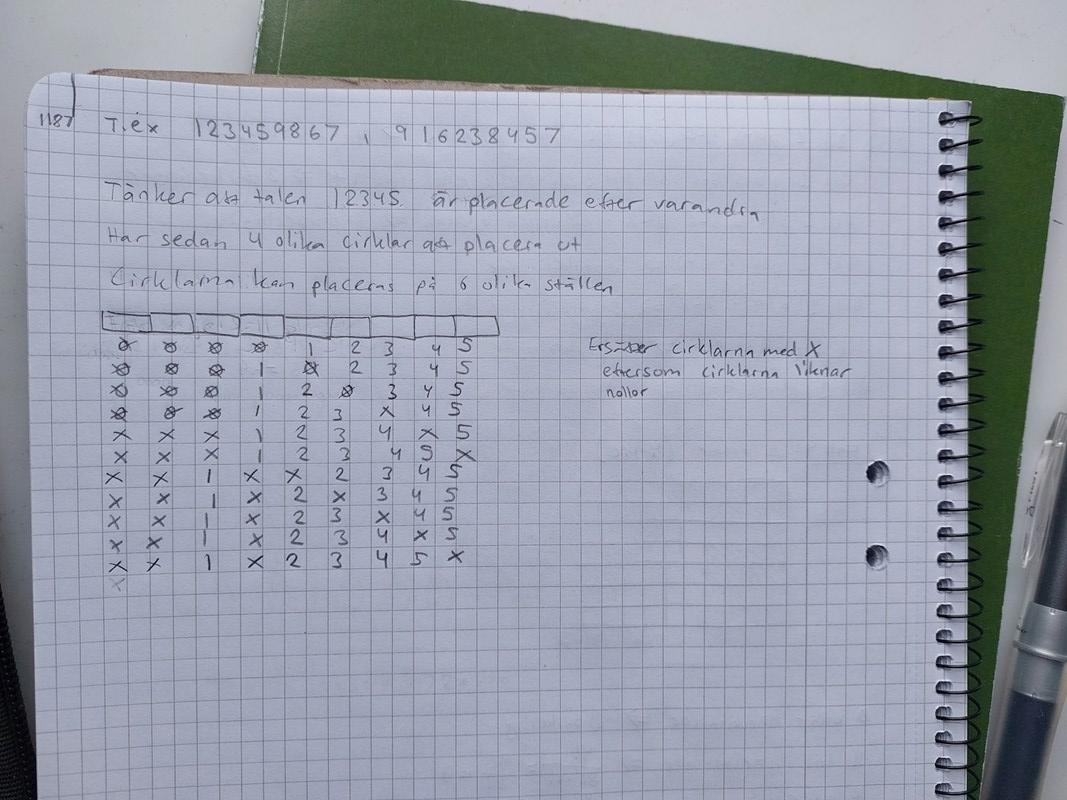 1187
T.ex 123459867 , 916238457
Tänker att talen 12345 är placerade efter varandra
Har sedan 4 olika cirklar att placera ut
Cirklarna kan placeras på 6 olika ställen
Ersätter cirklarna med X
eftersom cirklarna liknar
nollor
X X X X 1 2 3 4 5
X X X 1 X 2 3 4 5
X X X 1 2 X 3 4 5
X X X 1 2 3 X 4 5
X X X 1 2 3 4 X 5
X X X 1 2 3 4 5 X
X X 1 X X 2 3 4 5
X X 1 X 2 X 3 4 5
X X 1 X 2 3 X 4 5
X X 1 X 2 3 4 X 5
X X 1 X 2 3 4 5 X
X